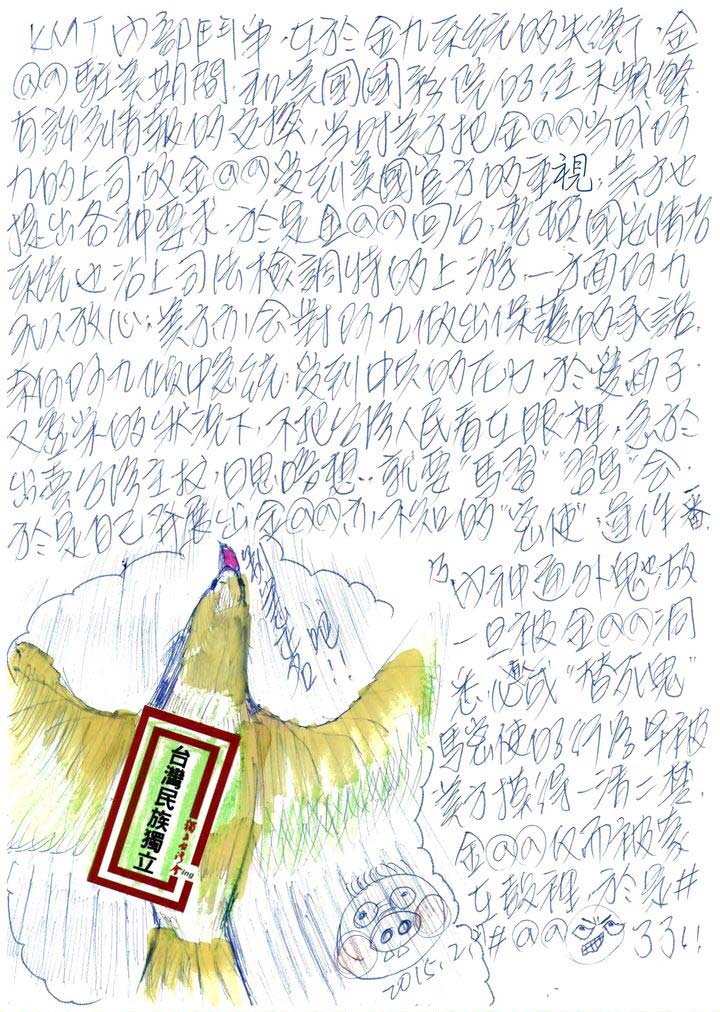 KMT內部鬥爭,在於金九系統的失衡下,金
@@駐美期間,和美國國務院的往來頻繁
有許多情報的交換,當時美方把金@@當成阿
九的上司,故金@@受到美國官方的重視,美方也
提出各种要求,於是金@@回台,整頓國安情治
系統也沾上司法檢調特的上游,一方面阿九
可以放心,美方亦會對阿九做出保護的承諾,
奈何阿九做中總統,受到中共的壓力,於愛面子
又的狀況下,不把台灣人民看在眼裡,急於
出賣台灣主权,日思夜想..就要"馬習""習馬"會,
於是自己發展出金@@亦不知的"密使"運作一番,
乃內神通外鬼也故
一旦被金@@洞
悉,慘成"替死鬼"
馬密使的行為早被
美方摸得一清二楚,
金@@仅而被蒙
在鼓裡,於是#
#@@ 33!!
吧!!
台灣民族獨立
獨立台灣會
ing
2015.2.